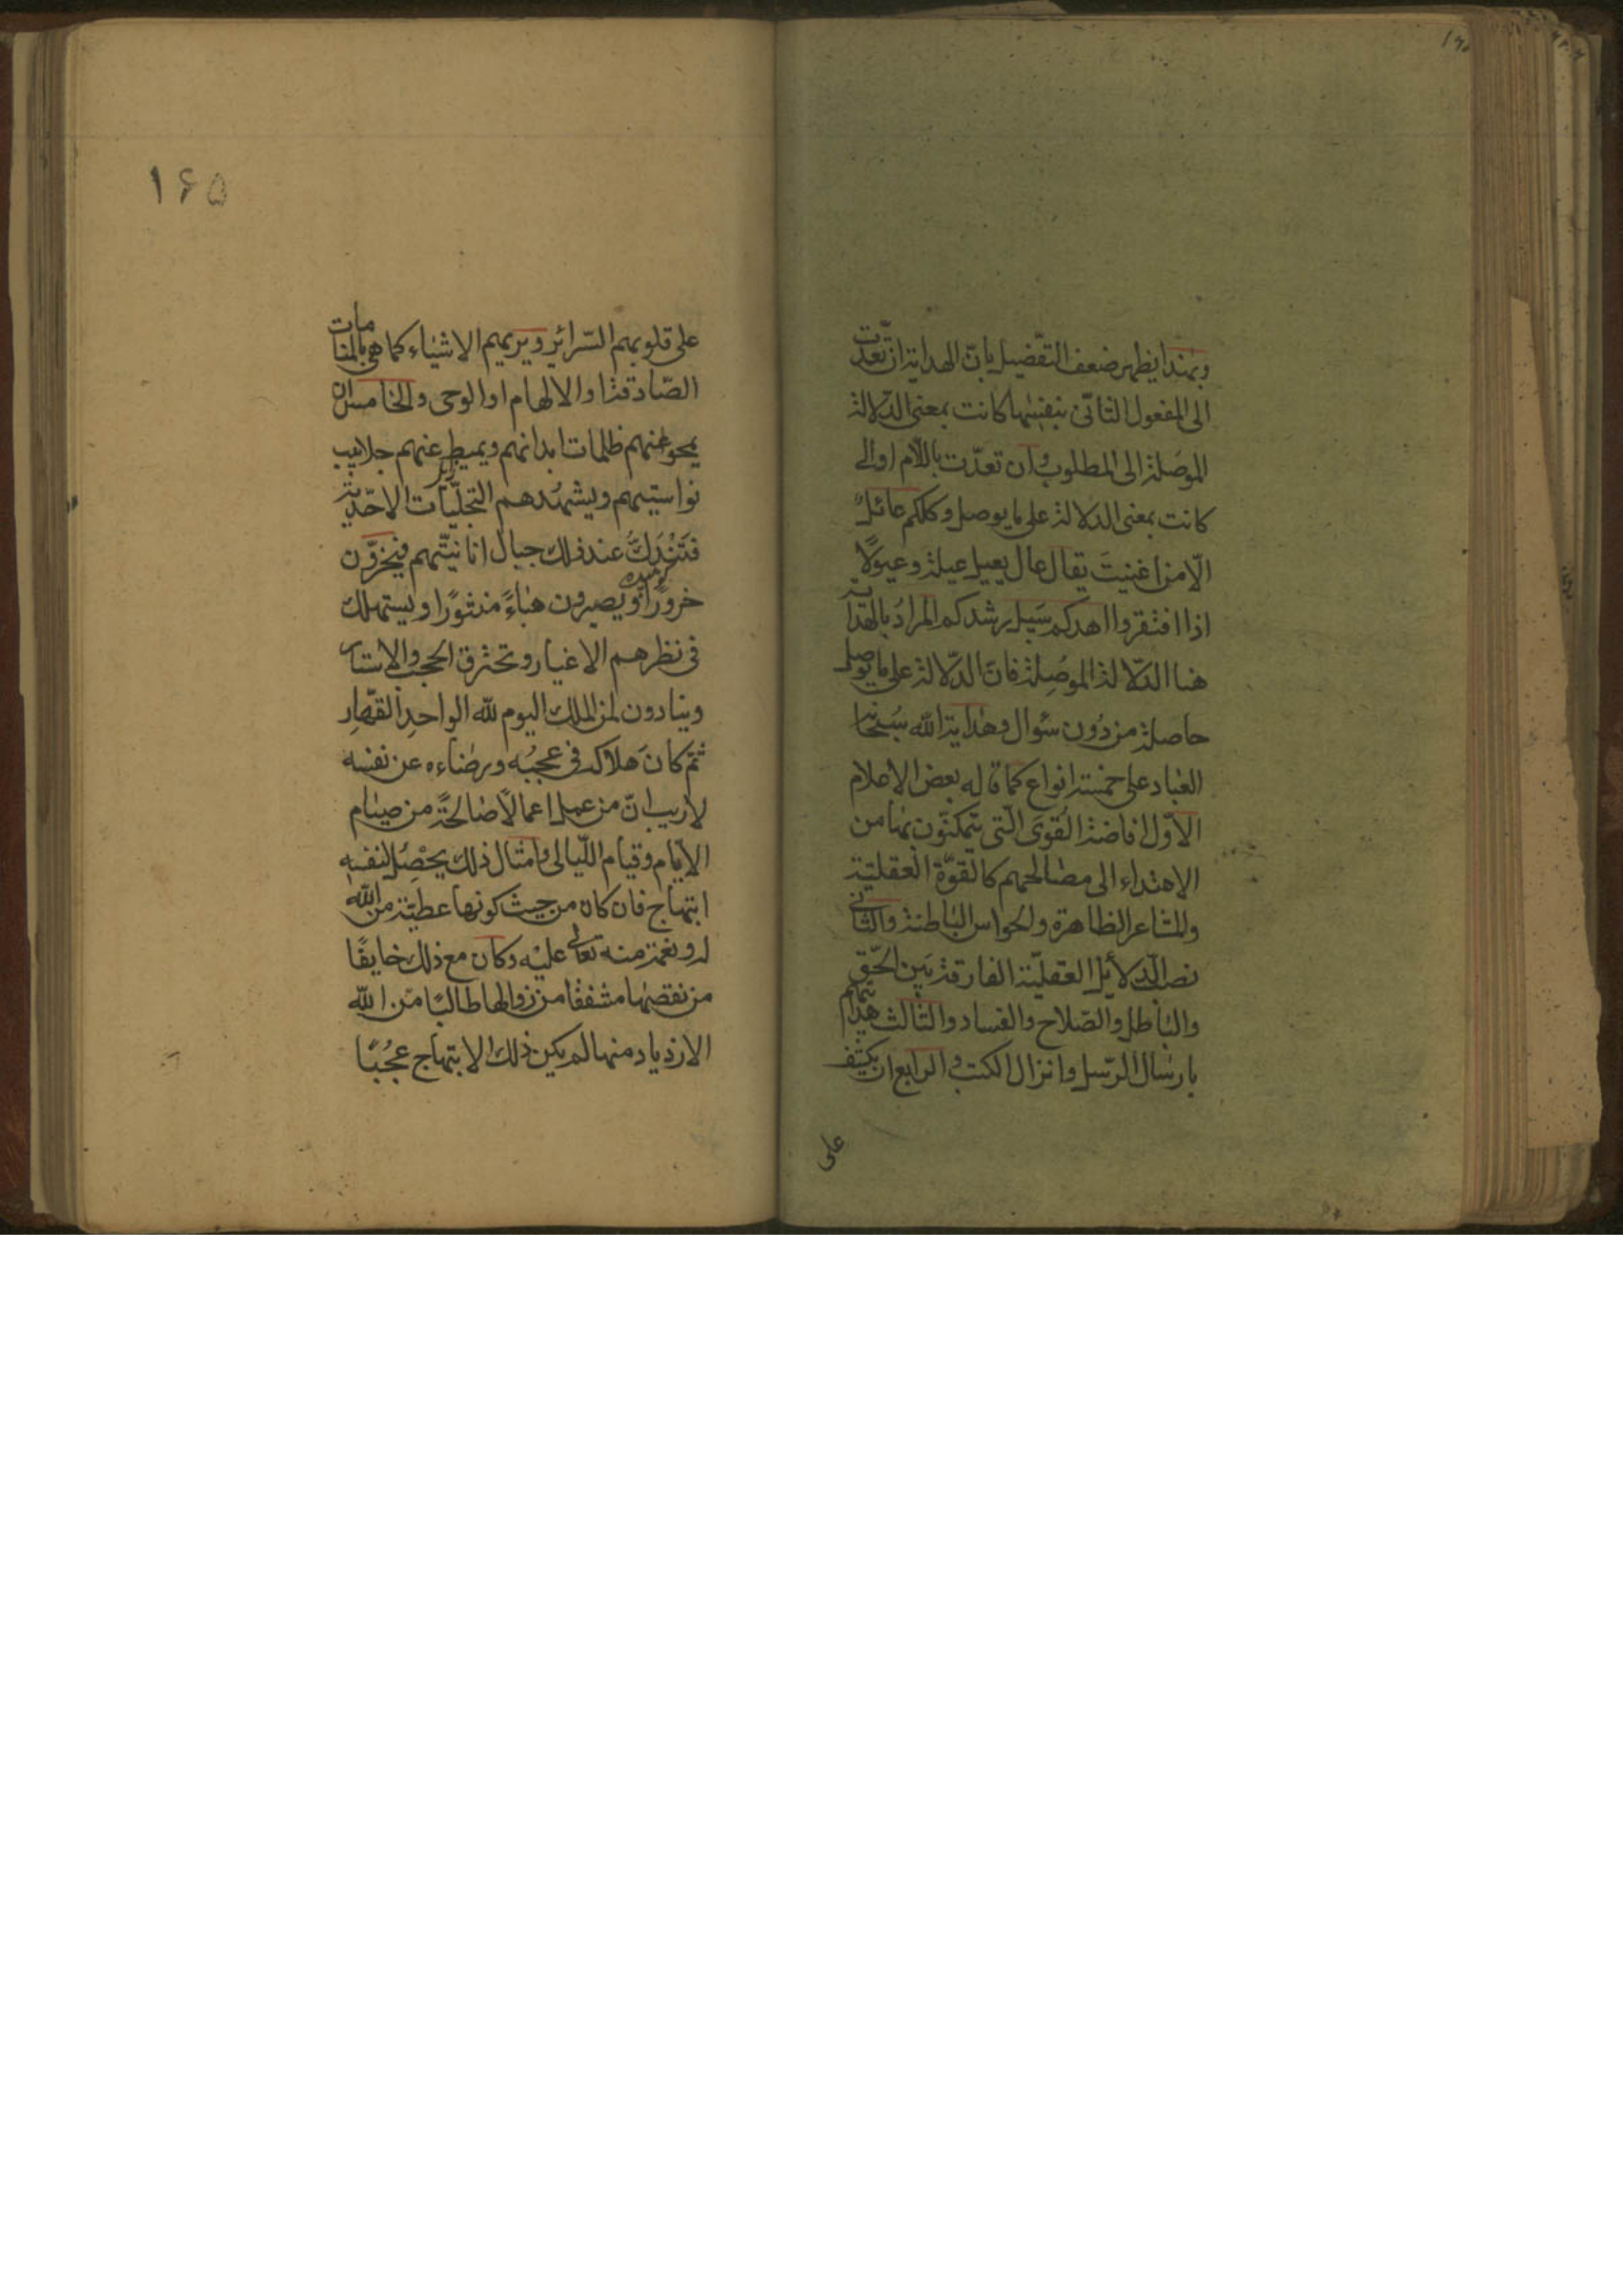 وبهذا يظهر ضعف التفضيل بانّ الهداية ان تعدّت
الى المفعول الثانى بنفسها كانت بمعنى الدّلالة
الموصلة الى المطلوب وان تعدّت باللّام او الى
كانت بمعنى الدلالة على ما يوصل وكلكم عائل
الّا من اغنيت يقال عال يعيل عيلة وعيولًا
اذا افتقر واهدكم سبيل رشدكم المراد بالهداية
هنا الدّلالة الموصلة فانّ الدّلالة على ما يوصل
حاصلة من دون سؤال وهداية الله سبحانه
العباد على خمسة انواع كما قاله بعض الاعلام
الاوّل افاضة القوى الّتى يتمكنّون بها من
الاهتداء الى مصالحهم كالقوّة العقليّة
والمشاعر الظاهرة والحواس الباطنة والثانى
نصب الدّلائل العقليّة الفارقة بين الحقّ
والباطل والصّلاح والفساد والثالث هدايتهم
بارسال الرّسل وانزال الكتب والرابع ان يكشف
على
۱۶۵
على قلوبهم السّرائر ويريهم الاشياء كما هى بالمنامات
الصّادقة او الالهام او الوحى والخامس ان
يمحو عنهم ظلمات ابدانهم ويميط عنهم جلابيب
نواسيتهم ويشهدهم التجلّيات الاحّدية
فتندكّ عند ذلك جبال انانيّتهم فيخرّون
خرورًا ويصيرون هباءً منثورًا ويستهلك
فى نظرهم الاغيار وتحترق الحجب والاستار
وينادون لمن الملك اليوم لله الواحد القهّار
ثمّ كان هلاكه فى عجبه ورضاءه عن نفسه
لا ريب انّ من عمل اعمالًا صالحةً من صيام
الايّام وقيام اللّيالى وامثال ذلك يحصل لنفسه
ابتهاج فان كان من حيث كونها عطيّة من الله
له ونعمة منه تعالى عليه وكان مع ذلك خايفًا
من نقصها مشفقًا من زوالها طالبًا من الله
الازدياد منها لم يكن ذلك الابتهاج عجبًا